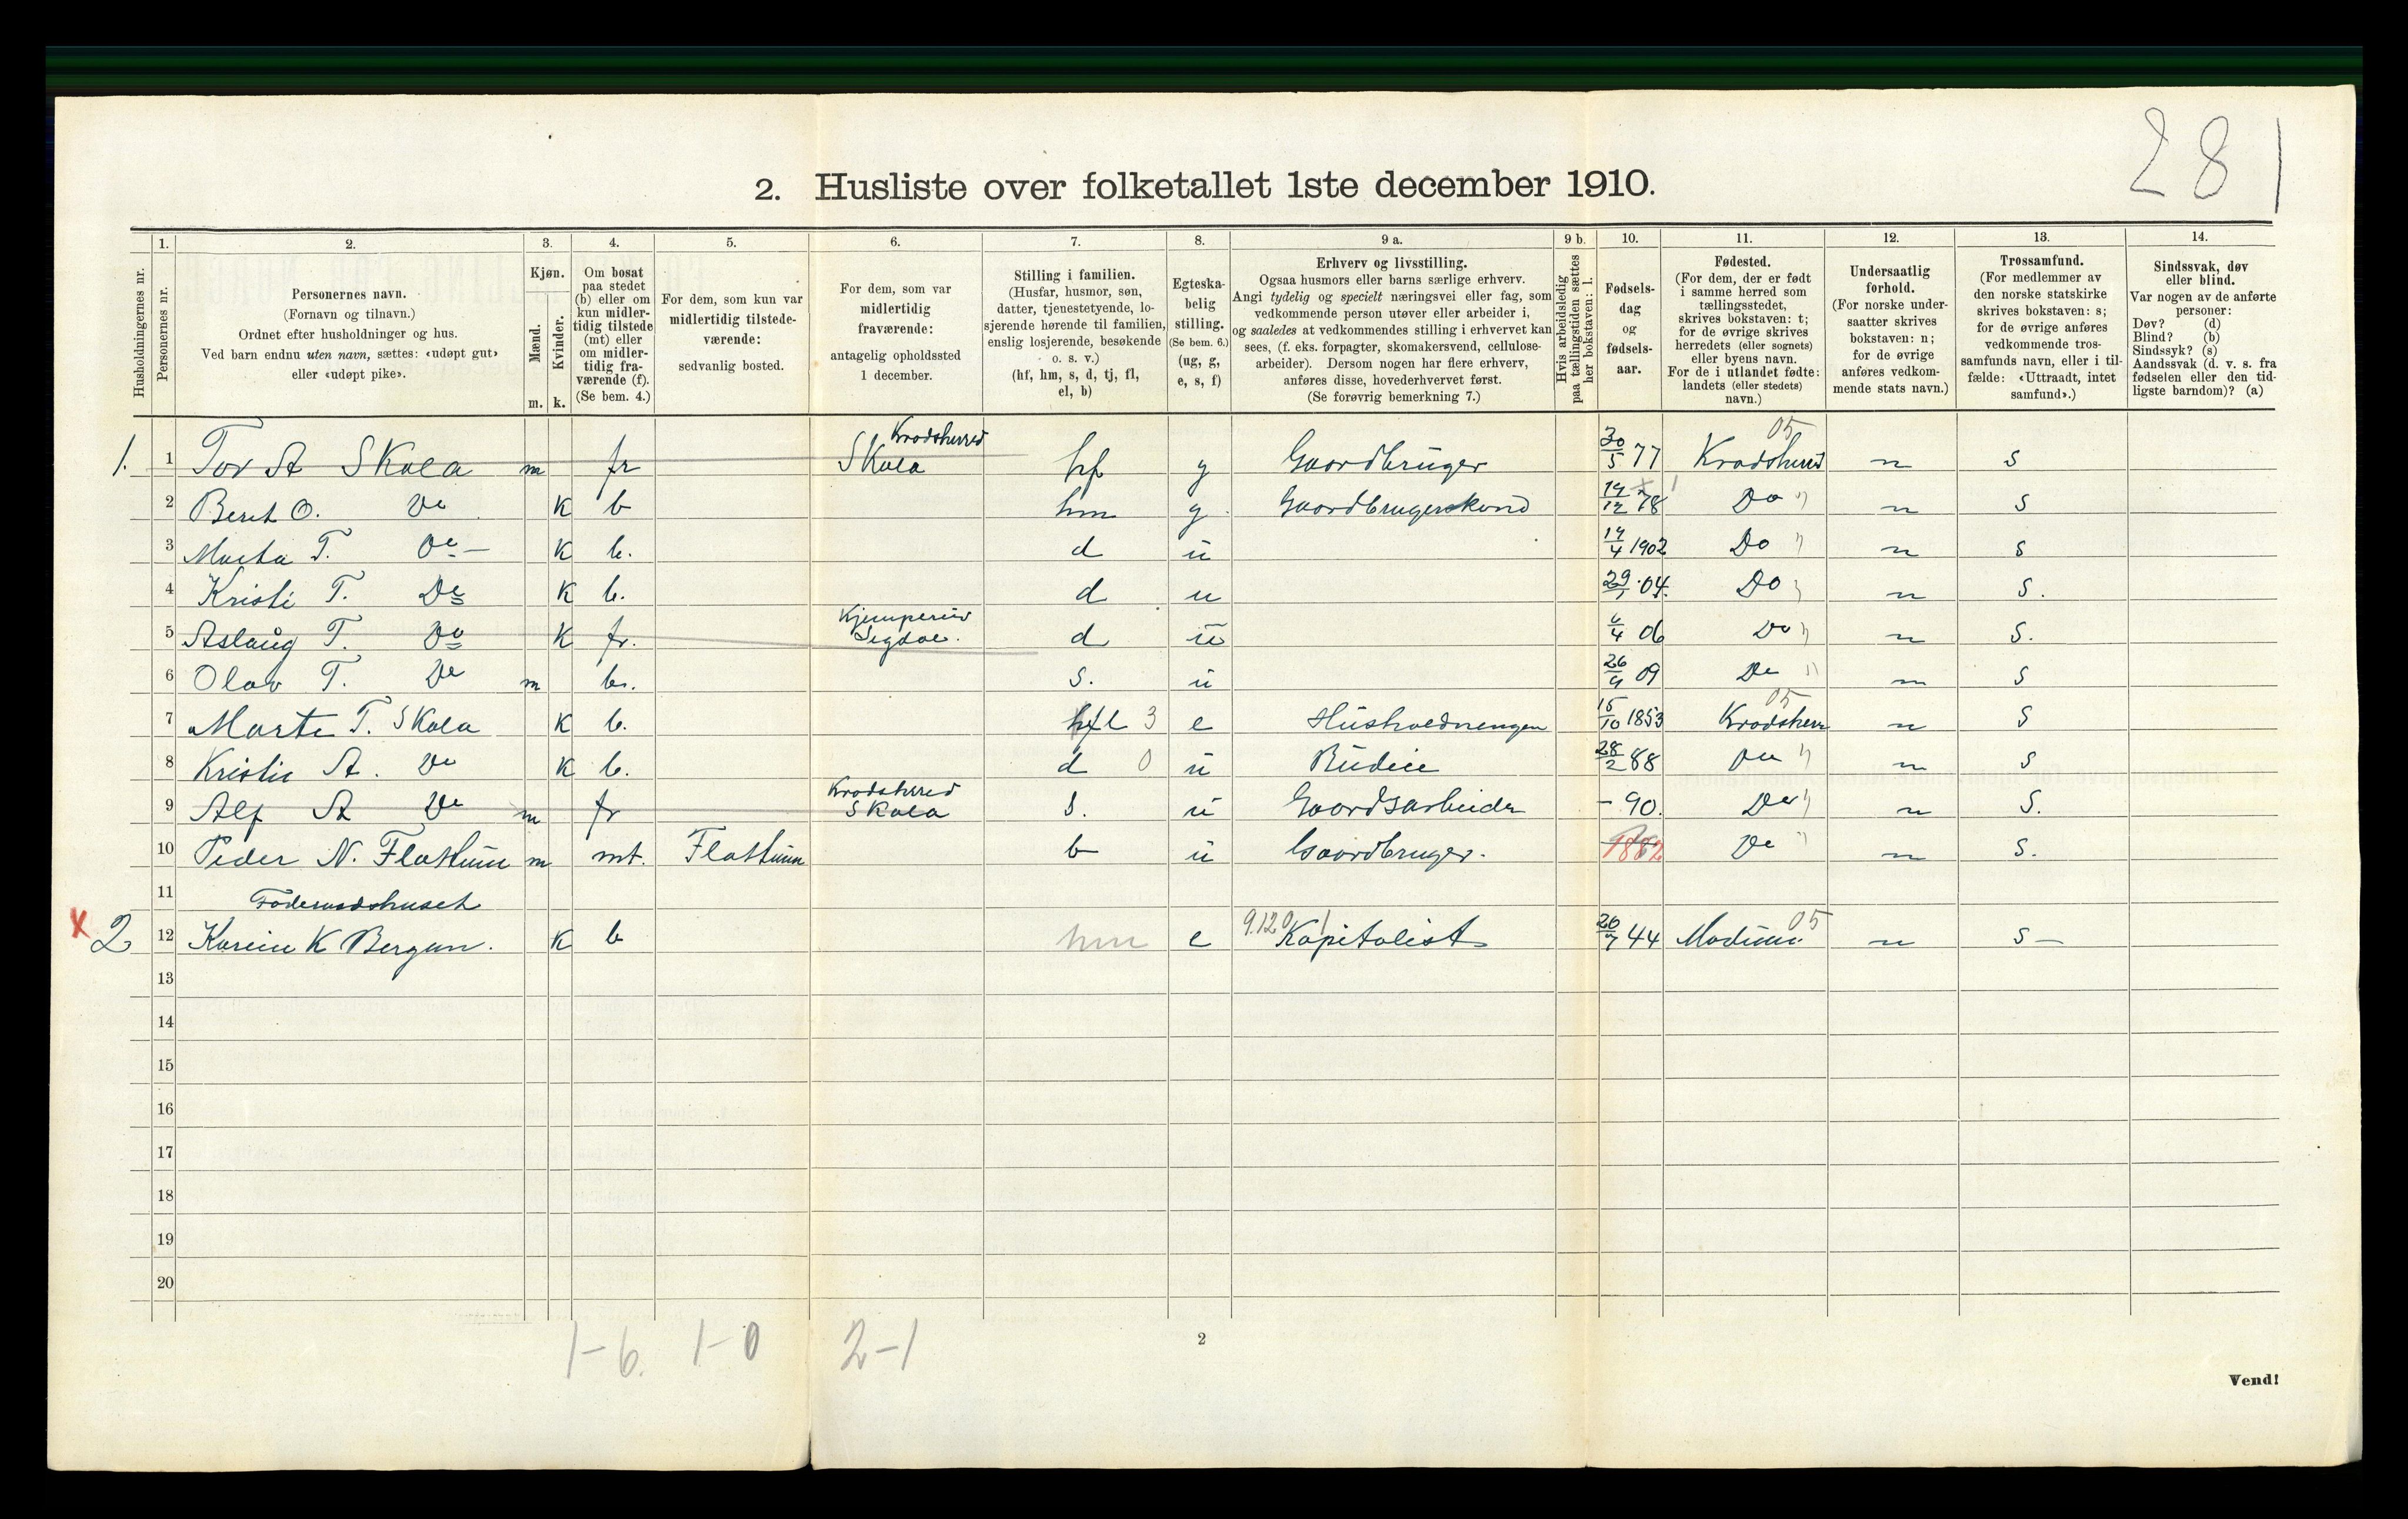 281
2. Husliste over folketallet 1ste december 1910.
Husholdningernes nr.
1.
Personernes nr.
2.
Personernes navn.
(Fornavn og tilnavn.)
Ordnet efter husholdninger og hus.
Ved barn endnu uten navn, sættes: «udøpt gut»
eller «udøpt pike».
3.
Kjøn.
Mænd.
Kvinder.
m. k.
4.
Om bosat
paa stedet
(b) eller om
kun midler-
tidig tilstede
(mt) eller
om midler-
tidig fra-
værende (f).
(Se bem. 4.)
5.
For dem, som kun var
midlertidig tilstede-
værende:
sedvanlig bosted.
6.
For dem, som var
midlertidig
fraværende:
antagelig opholdssted
1 december.
7.
Stilling i familien.
(Husfar, husmor, søn,
datter, tjenestetyende, lo-
sjerende hørende til familien,
enslig losjerende, besøkende
o. s. v.)
(hf, hm, s, d, tj, fl,
el, b)
8.
Egteska-
belig
stilling.
(Se bem. 6.)
(ug, g,
e, s, f)
9 a.
Erhverv og livsstilling.
Ogsaa husmors eller barns særlige erhverv.
Angi tydelig og specielt næringsvei eller fag, som
vedkommende person utøver eller arbeider i,
og saaledes at vedkommendes stilling i erhvervet kan
sees, (f. eks. forpagter, skomakersvend, cellulose-
arbeider). Dersom nogen har flere erhverv,
anføres disse, hovederhvervet først.
(Se forøvrig bemerkning 7.)
9 b.
Hvis arbeidsledig
paa tællingstiden sættes
her bokstaven: l.
10.
Fødsels-
dag
og
fødsels-
aar.
11.
Fødested.
(For dem, der er født
i samme herred som
tællingsstedet,
skrives bokstaven: t;
for de øvrige skrives
herredets (eller sognets)
eller byens navn.
For de i utlandet fødte:
landets (eller stedets)
navn.)
12.
Undersaatlig
forhold.
(For norske under-
saatter skrives
bokstaven: n;
for de øvrige
anføres vedkom-
mende stats navn.)
13.
Trossamfund.
(For medlemmer av
den norske statskirke
skrives bokstaven: s;
for de øvrige anføres
vedkommende tros-
samfunds navn, eller i til-
fælde: «Uttraadt, intet
samfund».)
14.
Sindssvak, døv
eller blind.
Var nogen av de anførte
personer:
Døv? (d)
Blind? (b)
Sindssyk? (s)
Aandssvak (d. v. s. fra
fødselen eller den tid-
ligste barndom)? (a)
1. 1 Tor A Skala m fr Krødsherred Skala hf g Gaardbruger 30/5 77 Krødsherred 05 n s
2 Berit O. Do K b hm g Gaardbrugerskone 14/12 78 Do n s
3 Marta T. Do K b. d u 14/4 1902 Do n s
4 Kristi T. Do K b. d u 04. Do n s.
5 Aslaug T. Do K fr. Sigdal. d u 06 Do n s.
6 Olav T. Do m b. s. u 26/9 09 Do n s
7 Marte T. Skala K b. fl 3 e Husholdningen 15/10 1853 Krødsherr 05 n s
8 Kristie A. Do K b. d 0 u Budeie 28/2 88 Do n s
9 Alf A Do m fr Krødsherred Skala s. u Gaardsarbeider - 90. Do n s.
10 Peder N. Flattum m mt. Flattum b u Gaardbruger. 1882 Do n s.
11 Föderaadshuset
x 2 12 Karein K Bergan. K b hm e 9.120 1 Kapitalist 26/7 44 Modum. 05 n s
13
14
15
16
17
18
19
20
1-6. 1-0 2-1
2
Vend!